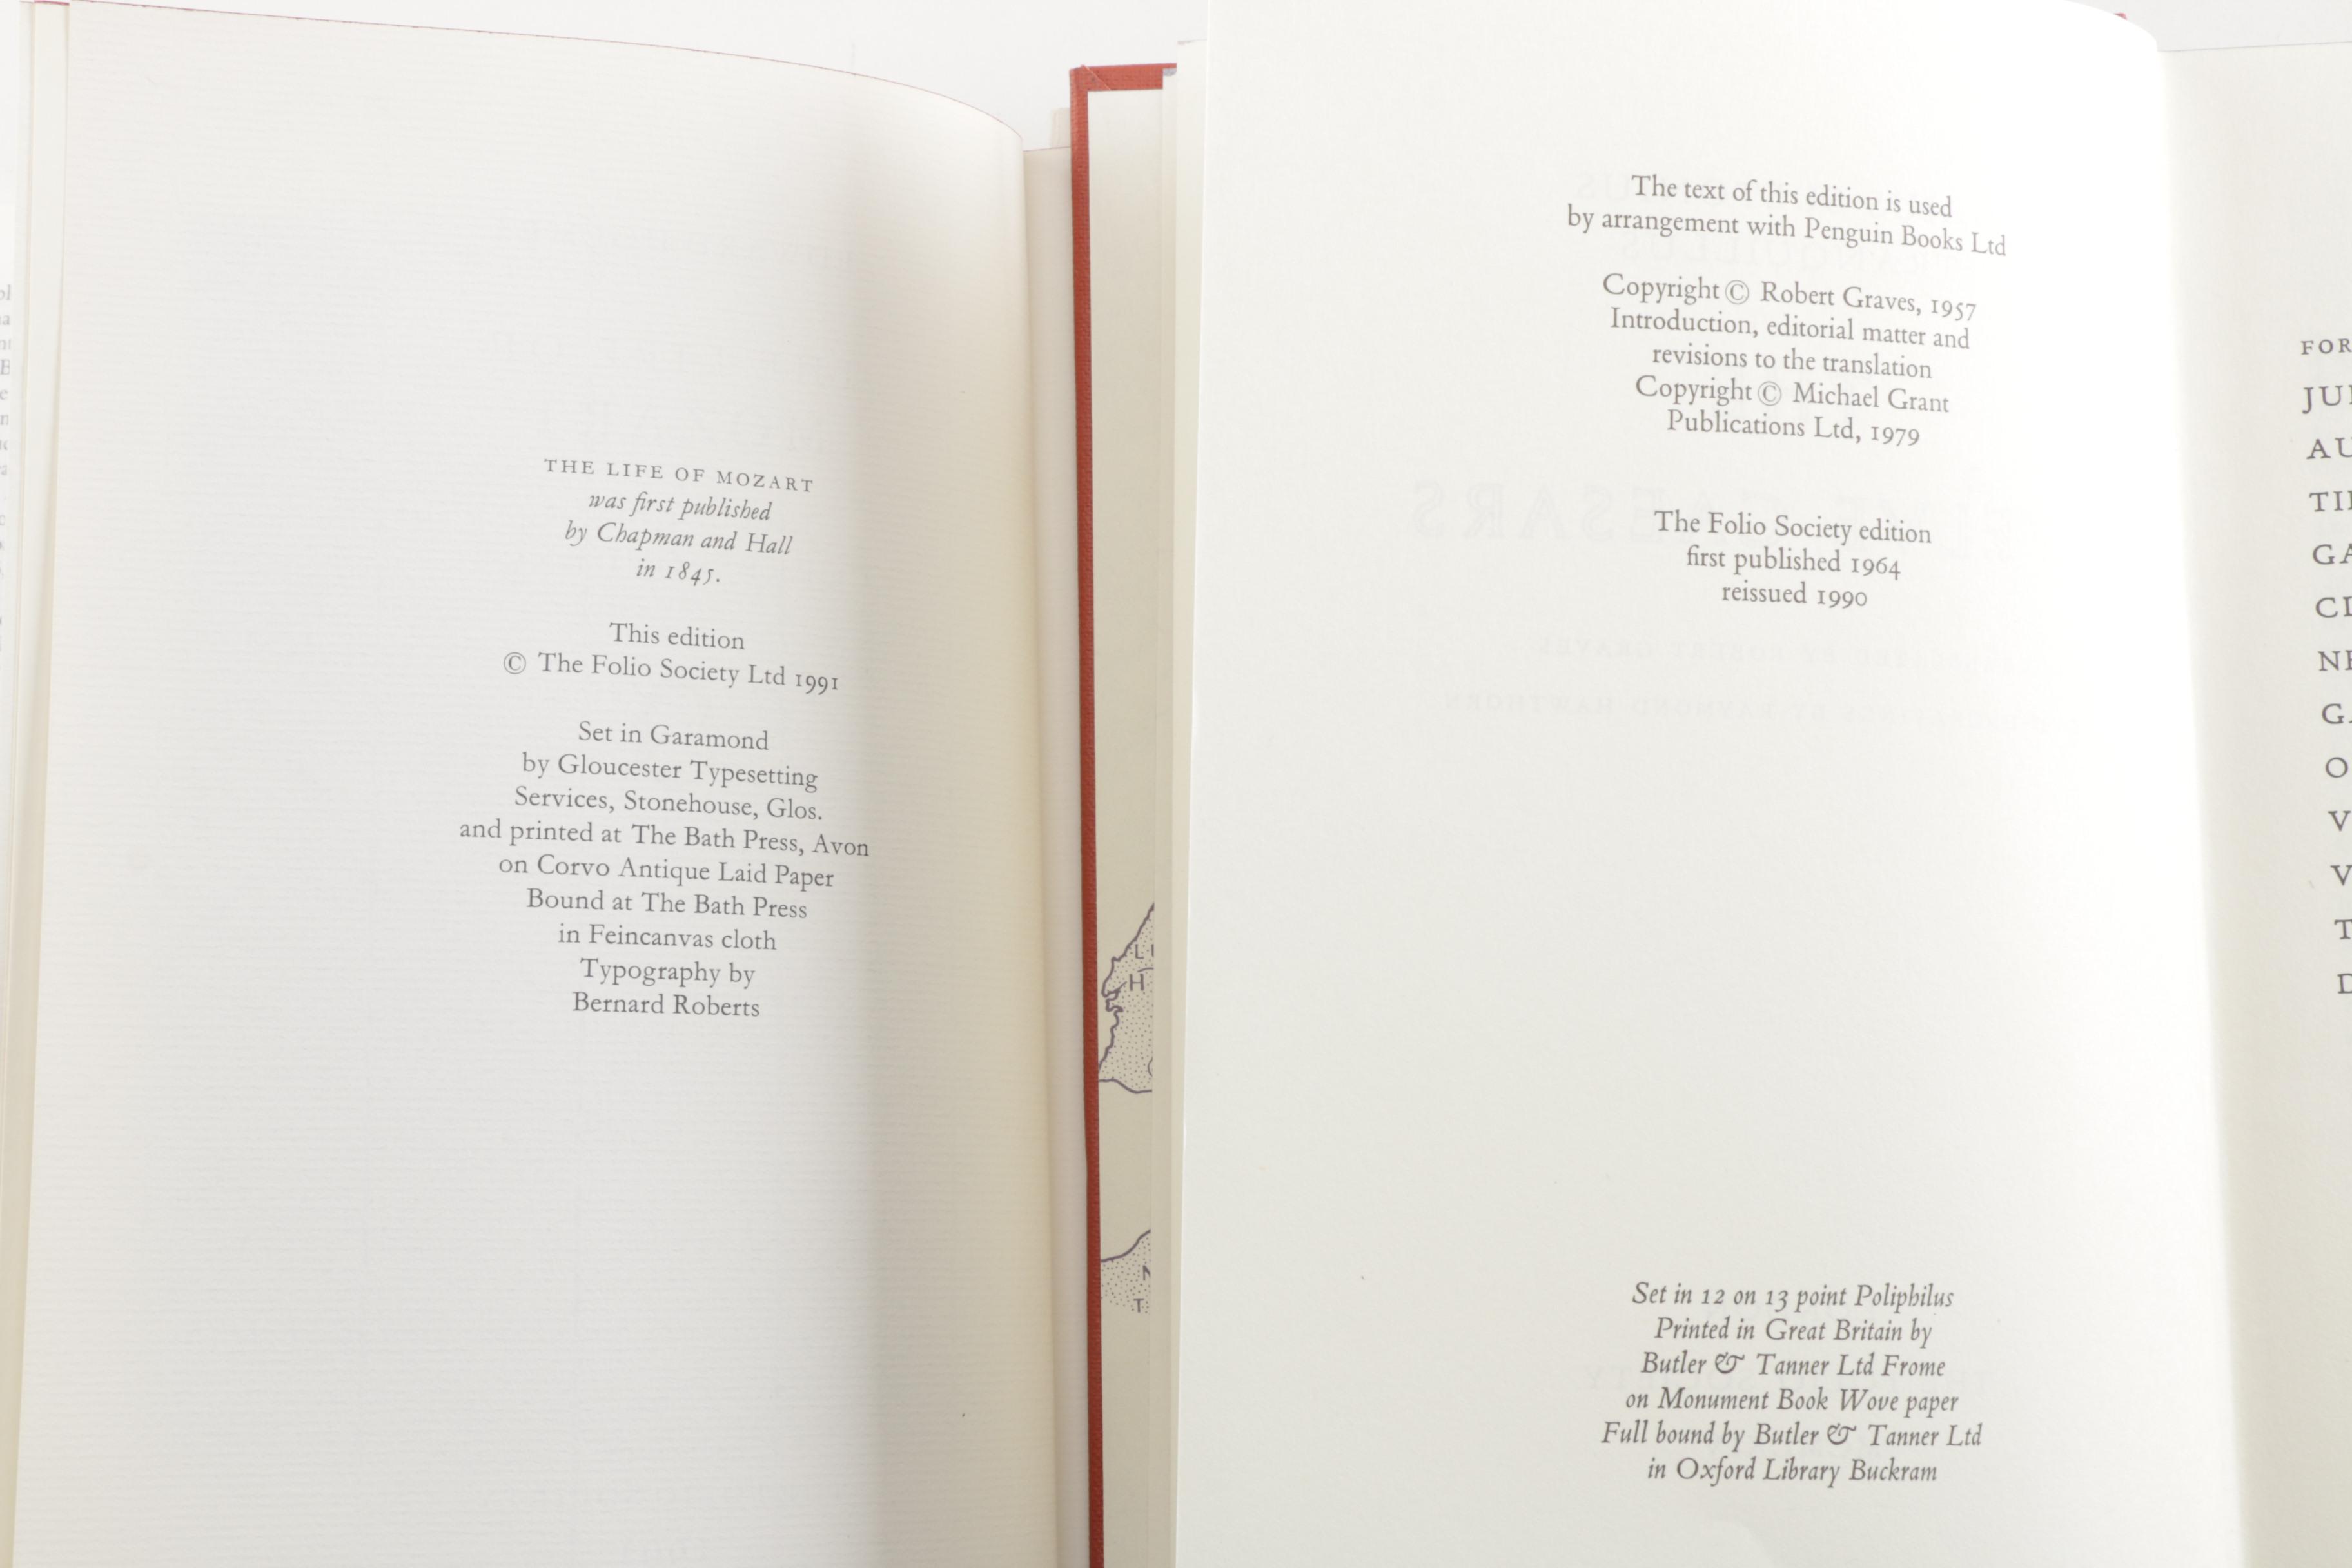 THE LIFE OF MOZART
was first published
by Chapman and Hall
in 1845.
This edition
© The Folio Society Ltd 1991
Set in Garamond
by Gloucester Typesetting
Services, Stonehouse, Glos.
and printed at The Bath Press, Avon
on Corvo Antique Laid Paper
Bound at The Bath Press
in Feincanvas cloth
Typography by
Bernard Roberts
The text of this edition is used
by arrangement with Penguin Books Ltd
Copyright © Robert Graves, 1957
Introduction, editorial matter and
revisions to the translation
Copyright © Michael Grant
Publications Ltd, 1979
The Folio Society edition
first published 1964
reissued 1990
Set in 12 on 13 point Poliphilus
Printed in Great Britain by
Butler & Tanner Ltd Frome
on Monument Book Wove paper
Full bound by Butler & Tanner Ltd
in Oxford Library Buckram
FOR
JU
AU
TI
GA
CL
NE
G
O
V
V
T
D